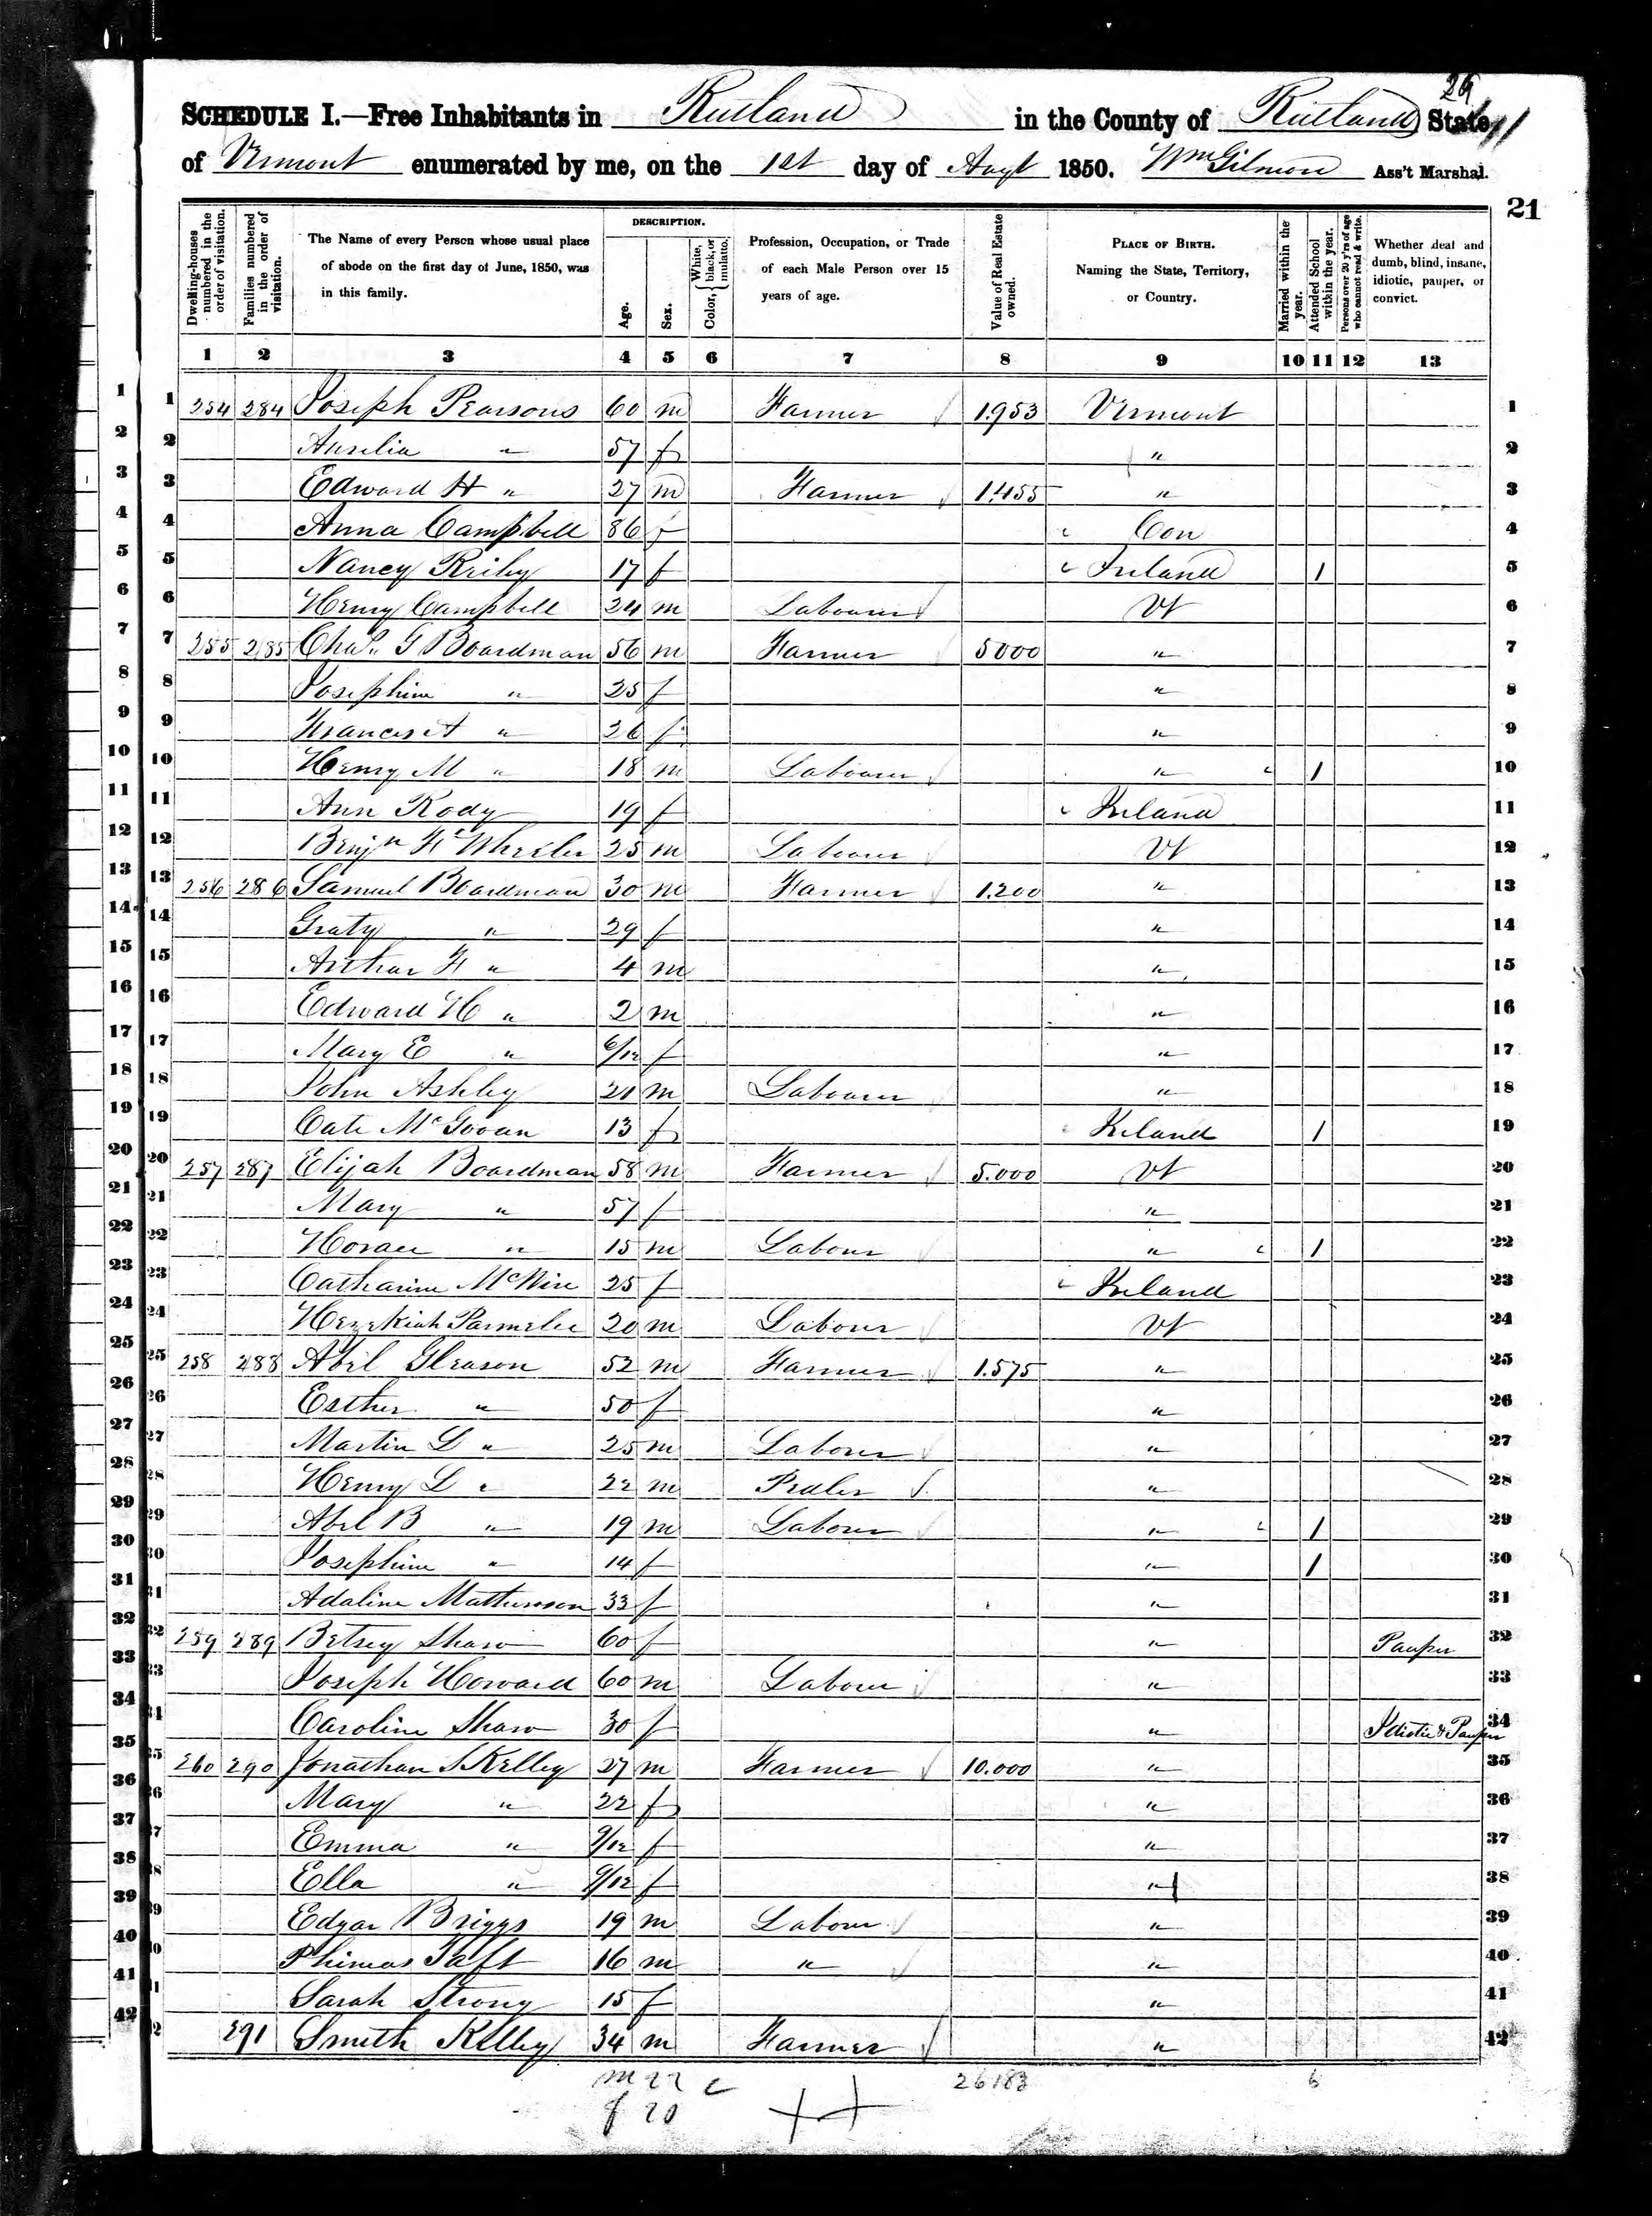 29
SCHEDULE I.—Free Inhabitants in Rutland in the County of Rutland State
of Vermont enumerated by me, on the 1st day of Augt 1850. Wm Gilmore Ass't Marshal.
21
Dwelling-houses numbered in the order of visitation.
Families numbered in the order of visitation.
The Name of every Person whose usual place of abode on the first day of June, 1850, was in this family.
DESCRIPTION.
Age.
Sex.
Color, { White, black, or mulatto.
Profession, Occupation, or Trade of each Male Person over 15 years of age.
Value of Real Estate owned.
PLACE OF BIRTH. Naming the State, Territory, or Country.
Married within the year.
Attended School within the year.
Persons over 20 y'rs of age who cannot read & write.
Whether deaf and dumb, blind, insane, idiotic, pauper, or convict.
1 2 3 4 5 6 7 8 9 10 11 12 13
1 254 284 Joseph Pearsons 60 m Farmer 1.953 Vermont 1
2 Aurilia " 57 f " 2
3 Edward H " 27 m Farmer 1.455 " 3
4 Anna Campbell 86 f Con 4
5 Nancy 17 f Ireland 1 5
6 Henry Campbell 24 m Labourer Vt 6
7 255 285 Chas. G Boardman 56 m Farmer 5000 " 7
8 Josephine " 25 f " 8
9 Frances A " 26 f " 9
10 Henry M " 18 m Labourer " 1 10
11 Ann Rody 19 f Ireland 11
12 Benjn F Wheeler 25 m Labourer Vt 12
13 256 286 Samuel Boardman 30 m Farmer 1.200 " 13
14 Graty " 29 f " 14
15 Arthur F " 4 m " 15
16 Edward H " 2 m " 16
17 Mary E " 6/12 f " 17
18 John Ashley 21 m Labourer " 18
19 Cate McGovan 13 f Ireland 1 19
20 257 287 Elijah Boardman 58 m Farmer 5.000 Vt 20
21 Mary " 57 f " 21
22 Horace " 15 m Labour " 1 22
23 Catharine 25 f Ireland 23
24 Hezekiah Parmelee 20 m Labour Vt 24
25 258 288 Abel Gleason 52 m Farmer 1.575 " 25
26 Esther " 50 f " 26
27 Martin L " 25 m Labourer " 27
28 Henry L " 22 m Pedler " 28
29 Abel B " 19 m Labourer " 1 29
30 Josephine " 14 f " 1 30
31 Adaline Matherson 33 f " 31
32 259 289 Betsey Shaw 60 f " Pauper 32
33 Joseph Howard 60 m Labour " 33
34 Caroline Shaw 30 f " Idiotic & Pauper 34
35 260 290 Jonathan S Kelley 27 m Farmer 10.000 " 35
36 Mary " 22 f " 36
37 Emma " 9/12 f " 37
38 Ella " 9/12 f " 38
39 Edgar Briggs 19 m Labour " 39
40 Phineas Taft 16 m " " 40
41 Sarah Strong 15 f " 41
42 291 Smith Kelley 34 m Farmer " 42
m 22 26183 6
f 20